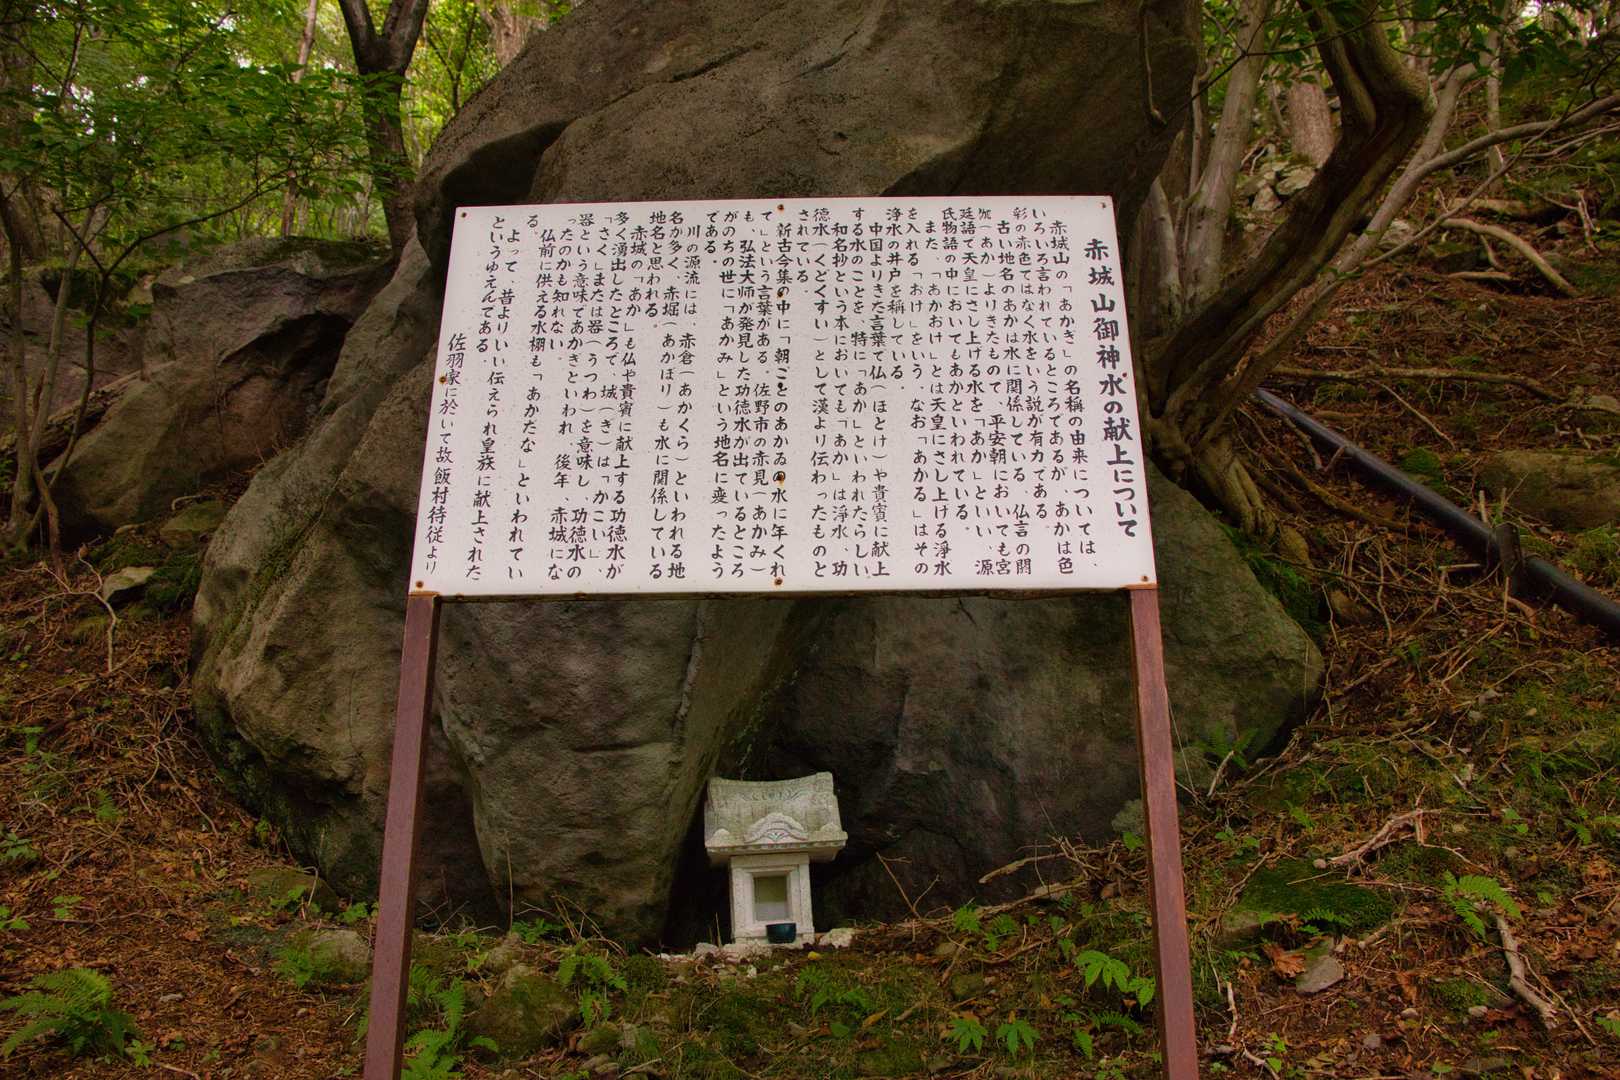 赤城山御神水の献上について
赤城山の「あかぎ」の名稱の由来については、
いろいろ言われているところであるが、あかは色
彩の赤色ではなく水をいう説が有力である。
古い地名のあかは水に関係している、仏言の閼
伽(あか)よりきたもので、平安朝においても宮
廷語で天皇にさし上げる水を「あか」といい、源
氏物語の中においてもあかといわれている。
また、「あかおけ」とは天皇にさし上げる淨水
を入れる「おけ」をいう、なお「あかる」はその
淨水の井戸を稱している。
中国よりきた言葉で仏(ほとけ)や貴賓に献上
する水のことを、特に「あか」といわれたらしい
和名抄という本においても「あか」は淨水、功
徳水(くどくすい)として漢より伝わったものと
されている。
新古今集の中に「朝ごとのあかゐの水に年くれ
て」という言葉がある。佐野市の赤見(あかみ)
も、弘法大師が発見した功徳水が出ているところ
がのちの世に「あかみ」という地名に変ったよう
である。
川の源流には、赤倉(あかくら)といわれる地
名が多く、赤堀(あかぼり)も水に関係している
地名と思われる。
赤城の「あか」も仏や貴賓に献上する功徳水が
多く湧出したところで、城(き)は「かこい」、
「さく」または器(うつわ)を意味し、功徳水の
器という意味であかぎといわれ、後年、赤城にな
ったのかも知れない。
仏前に供える水棚も「あかだな」といわれてい
る。
よって、昔よりいい伝えられ皇族に献上された
というゆえんである。
佐羽家に於いて故飯村待従より